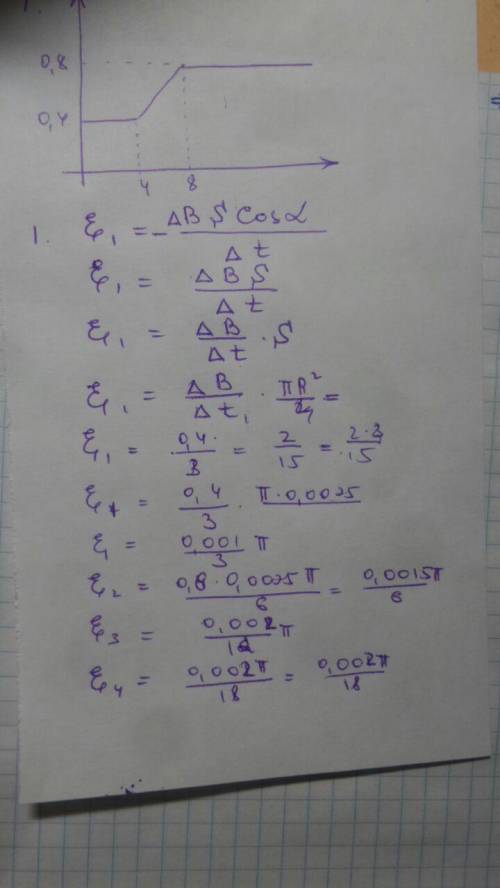 0,8
0,4
4 8
1. ℰ₁ = - ΔB S cos α / Δt
ℰ₁ = ΔB S / Δt
ℰ₁ = ΔB / Δt · S
ℰ₁ = ΔB / Δt₁ · πR² / =
ℰ₁ = 0,4· / 3 = 2 / 15 = 2·3 / 15
ℰ = 0,4 / 3 · π·0,0025
ℰ₁ = 0,001 / 3 π
ℰ₂ = 0,6·0,0025π / 6 = 0,0015π / 6
ℰ₃ = 0,002 / 12 π
ℰ₄ = 0,002π / 18 = 0,002π / 18